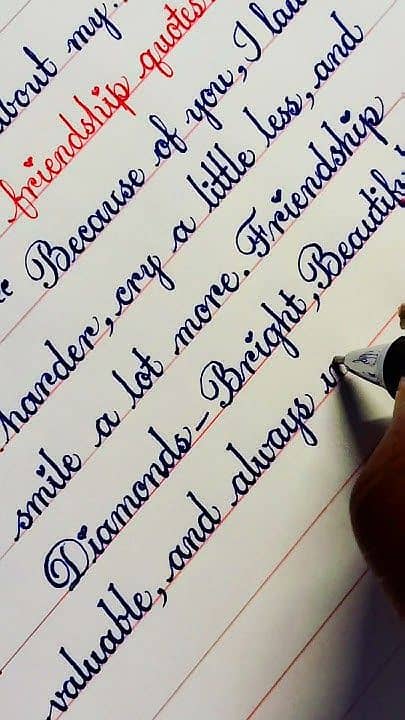 about my..
friendship quotes
Because of you, I lau
harder, cry a little less, and
smile a lot more. Friendship
Diamonds - Bright, Beautiful
valuable, and always